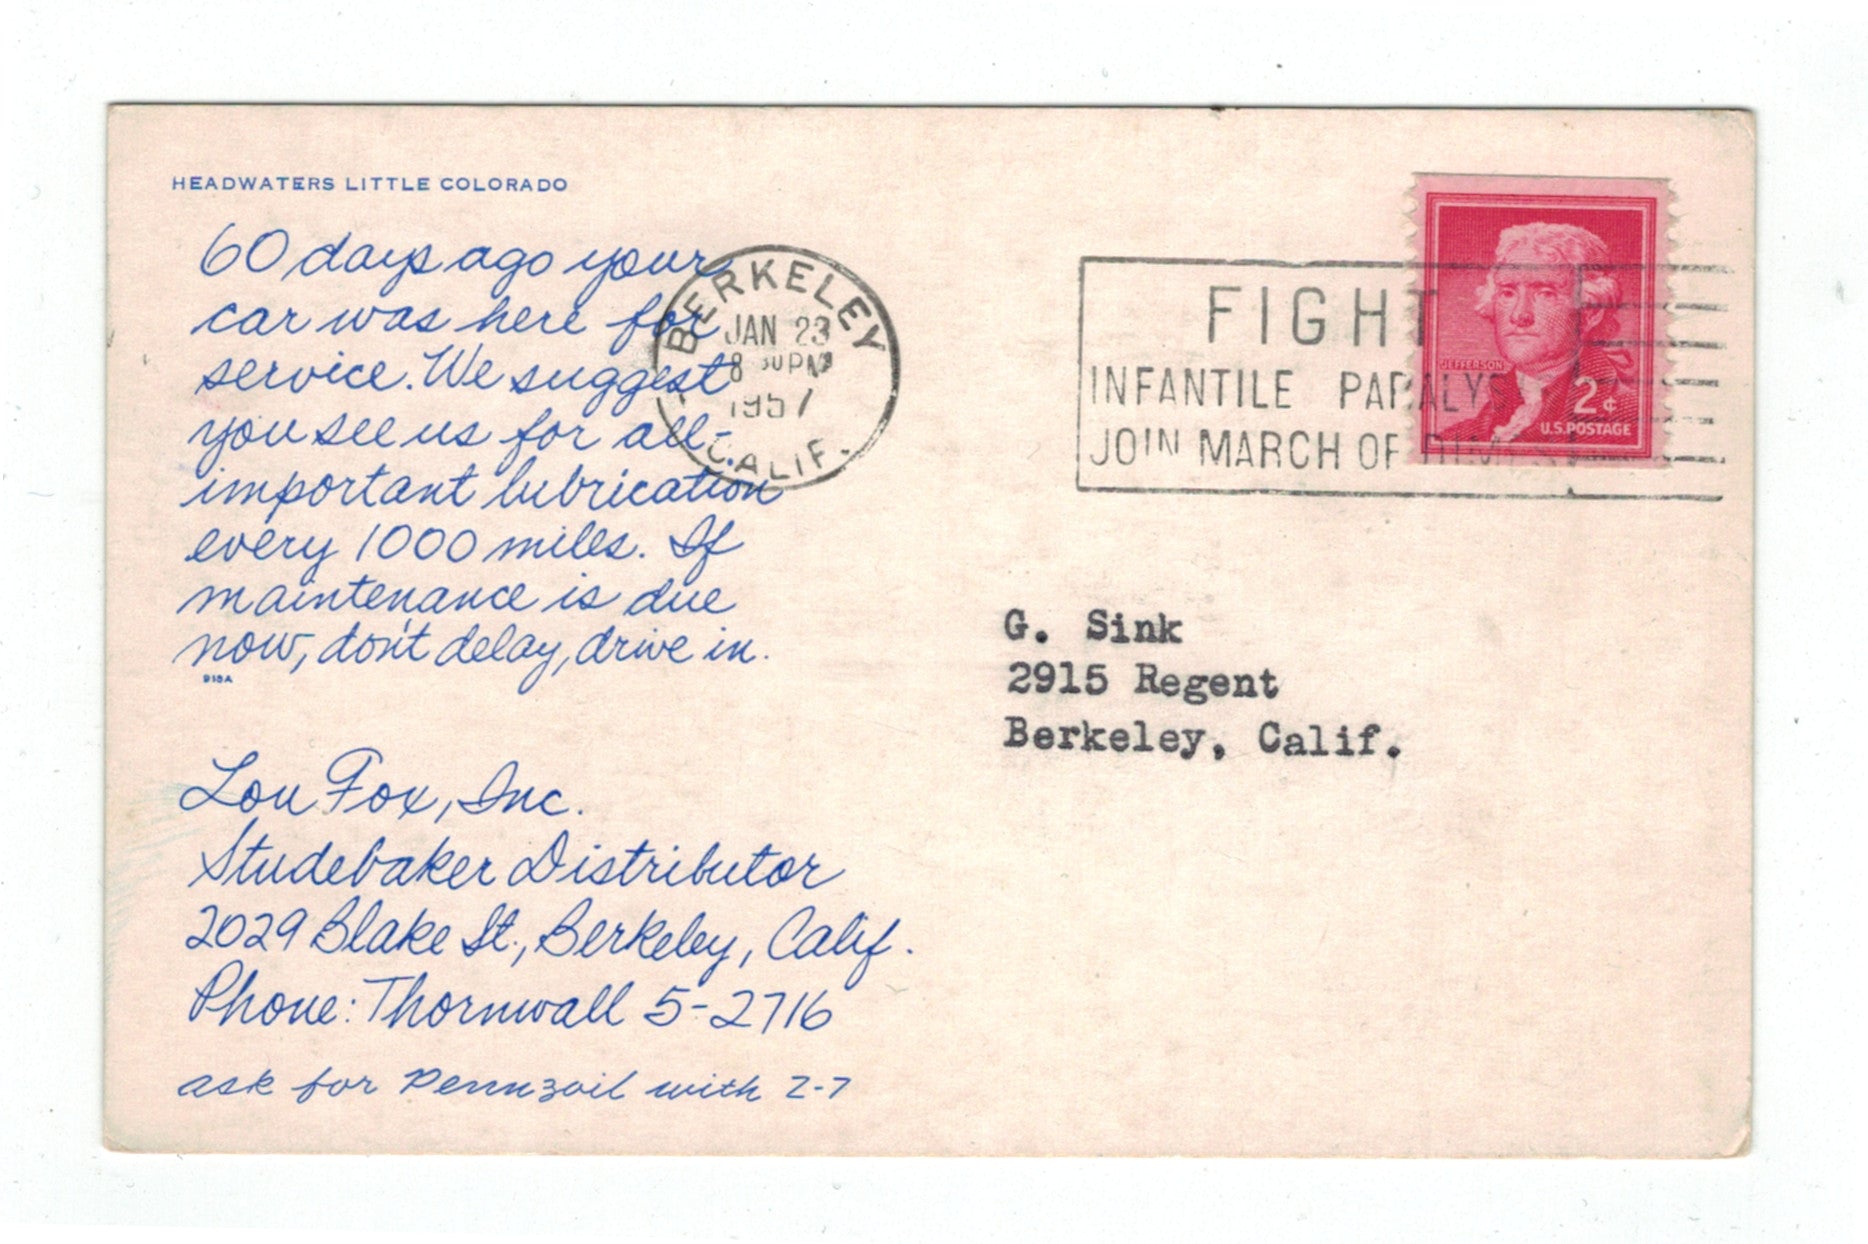 HEADWATERS LITTLE COLORADO
60 days ago your
car was here for
service. We suggest
you see us for all-
important lubrication
every 1000 miles. If
maintenance is due
now, don't delay, drive in.
918A
Lou Fox, Inc.
Studebaker Distributor
2029 Blake St., Berkeley, Calif.
Phone: Thornwall 5-2716
ask for Pennzoil with Z-7
BERKELEY
JAN 23
8 30 PM
1957
CALIF.
FIGHT
INFANTILE PARALYS
JOIN MARCH OF
JEFFERSON
2¢
U.S. POSTAGE
G. Sink
2915 Regent
Berkeley, Calif.